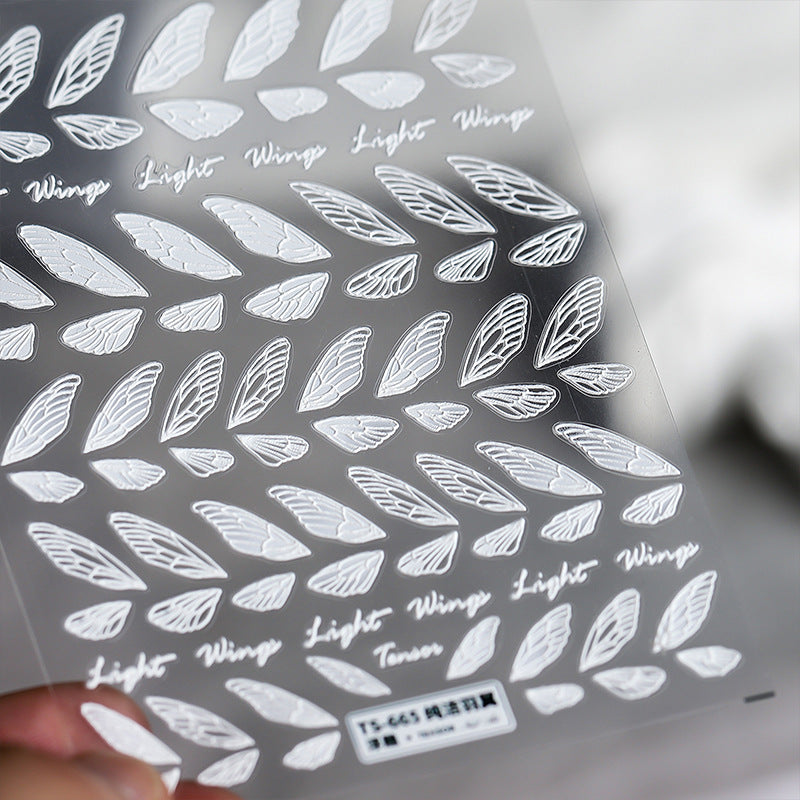 Wings Light Wings Light Wings
Light Wings Light Wings Light Wings
Tensor
TS-665 纯洁羽翼
浮雕